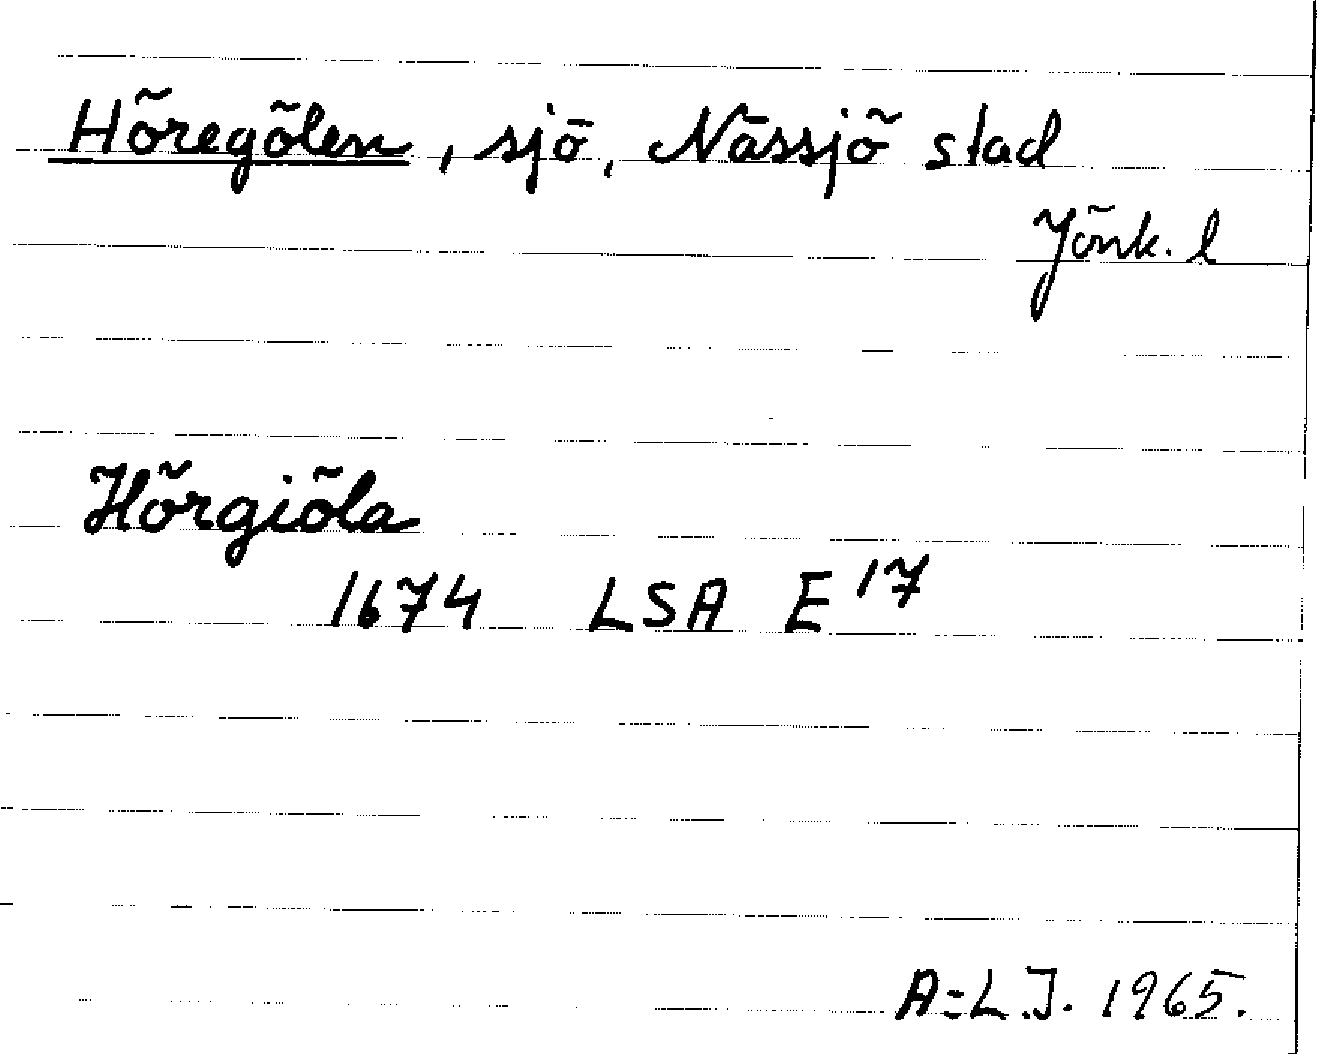 Höregölen, sjö, Nässjö stad
Jönk. l
Hörgiöla
1674 LSA E 17
A-L.J. 1965.